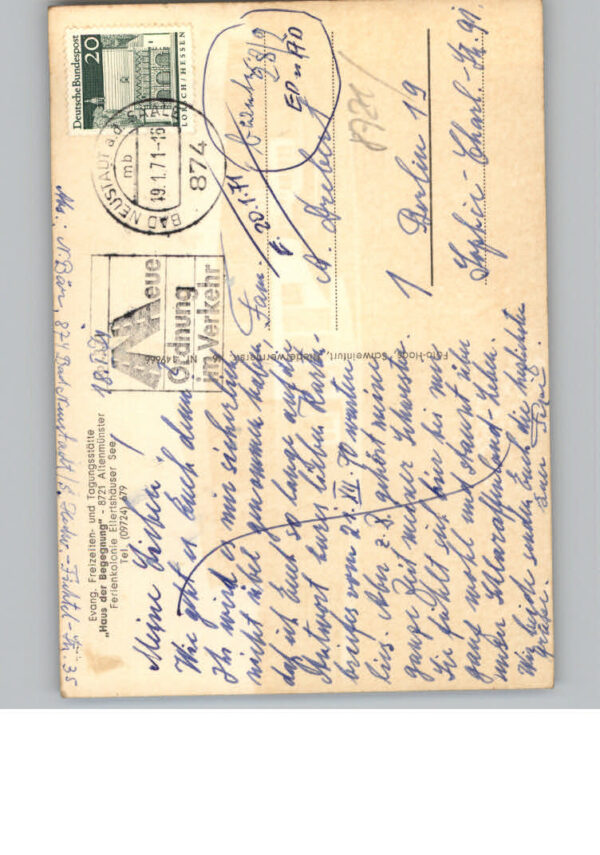 Evang. Freizeiten- und Tagungsstätte
„Haus der Begegnung" - 8721 Altenmünster
Ferienkolonie Ellertshäuser See,
Tel. (09724) 679
18.1.71
Meine Lieben!
Wie geht es Euch denn?
Ihr werdet es mir sicherlich
nicht übel genommen haben,
daß ich Euch so lange auf die
Antwort Eures lieben Karten-
briefes vom 21. XII. 70 warten
liess. Aber z. Z. gehört meine
ganze Zeit meiner Schwester.
Sie fühlt sich hier bei mir
ganz wohl und staunt über
unser Schlaraffenland-Leben.
Wir beide senden Euch die herzlichsten
Grüße. Eure
Abs.: N. Bär, 874 Bad Neustadt/S.
-Fichtel-Str. 35
Deutsche Bundespost
20
LORSCH / HESSEN
BAD NEUSTADT a.d. SAALE
mb
19.1.71-16
874
Neue
Ordnung
im Verkehr
Foto-Hock, Schweinfurt,
Nr. 149666
E. 20.1.71
8721
Fam.
A. Dreher
1 Berlin 19
Sophie-Charl.-Str. 91